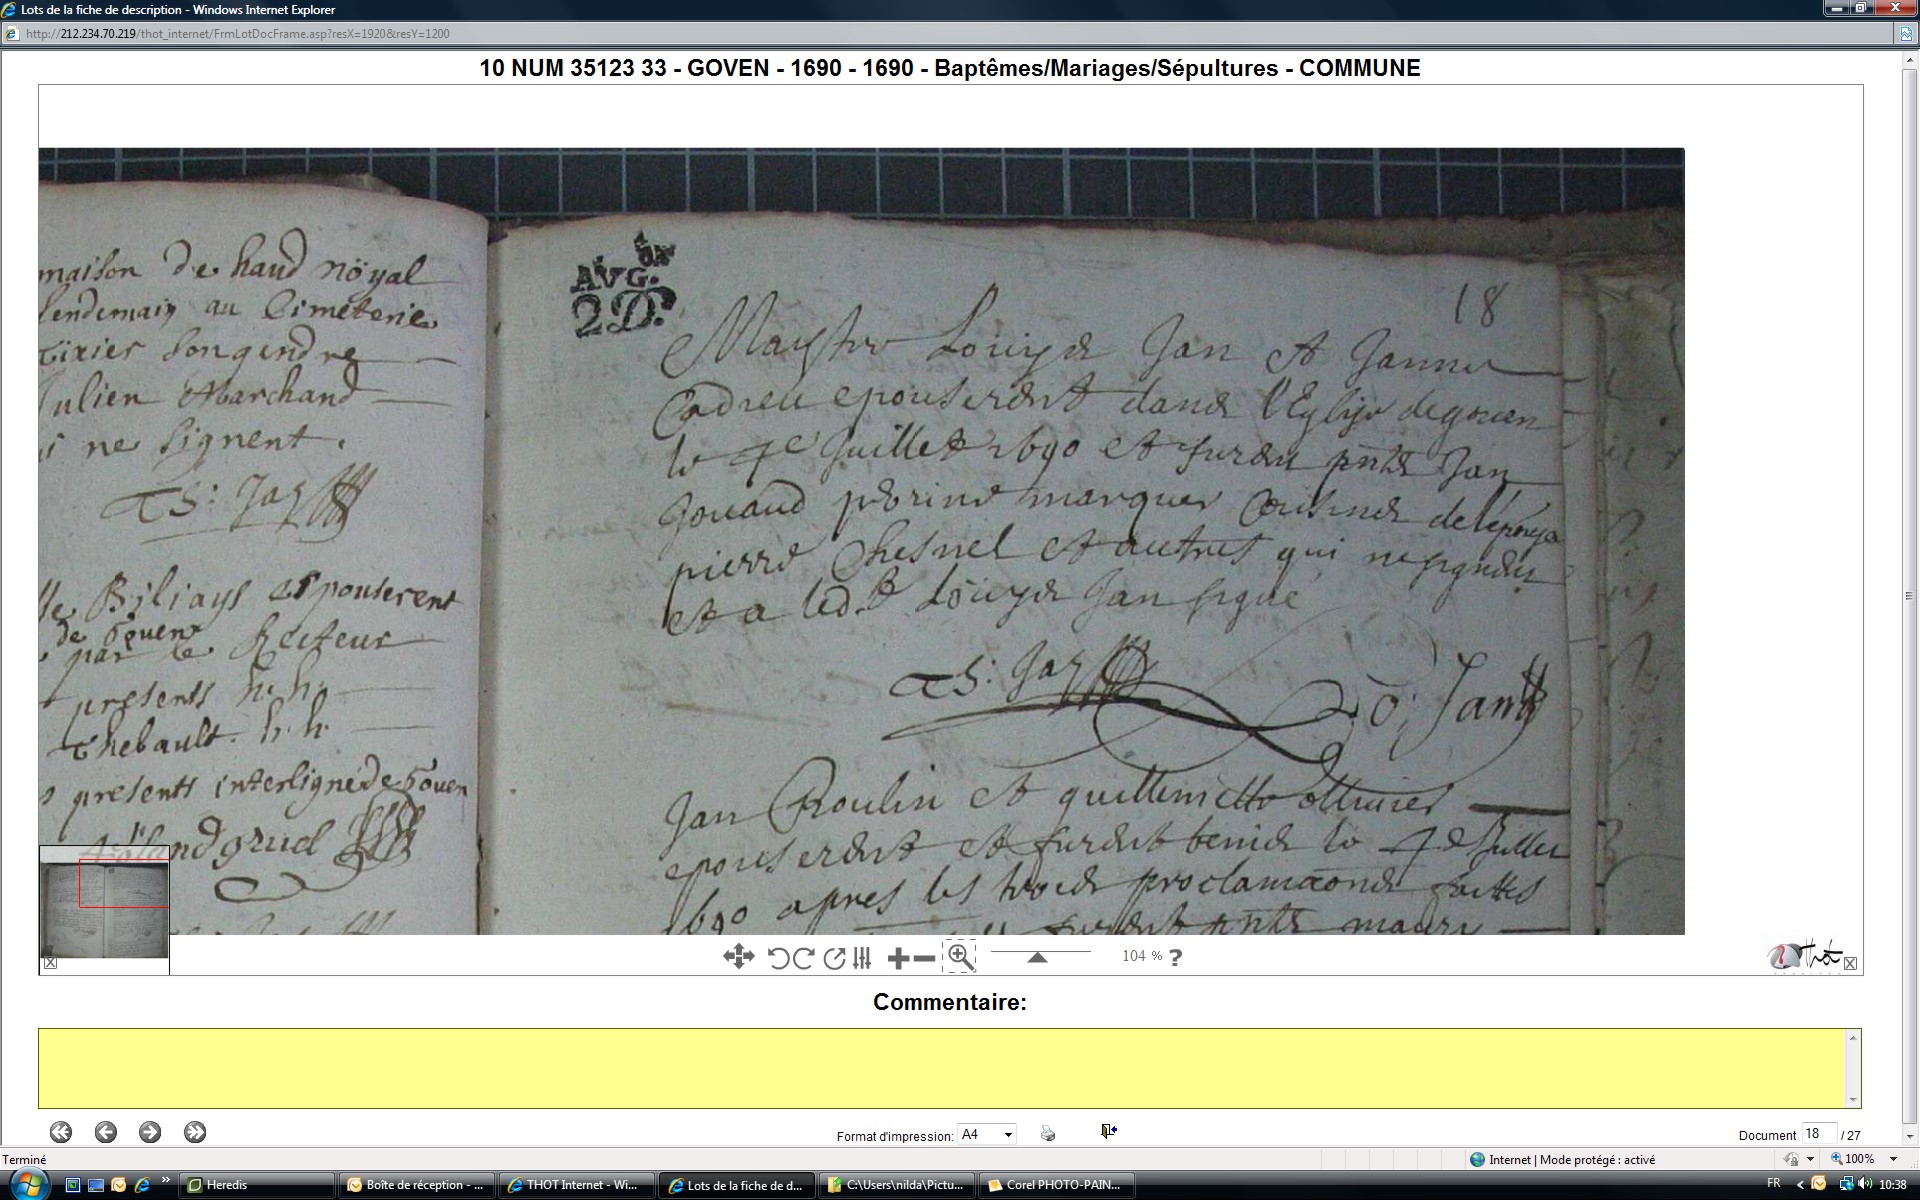 Lots de la fiche de description - Windows Internet Explorer
http://212.234.70.219/thot_internet/FrmLotDocFrame.asp?resX=1920&resY=1200
10 NUM 35123 33 - GOVEN - 1690 - 1690 - Baptêmes/Mariages/Sépultures - COMMUNE
maison de haud nöyal
lendemain au Cimeterie
Tixier son gendre
Julien Marchand
ne signent.
Biliays espouserent
de Gouen
par le Recteur
presents h.h.
Thebault h.h.
presents interligne de Gouen
AVG.
2D.
18
Maistre Loüys Jan et Janne
Cadieu epouserent dans l'Eglise de gouen
le 4e Juillet 1690 et furent pnts Jan
Jouaud perine marquer Cousine de
pierre Chesnel et autres qui ne signent
et a led. Loüys Jan signé
Jan Roulin et guillemette ollivier
epouserent et furent benis le 4e Juillet
1690 apres les trois proclamaons faittes
furent pnts
104 %
?
Thot
Commentaire:
Format d'impression: A4
Document 18 / 27
Terminé
Internet | Mode protégé : activé
100%
Heredis
Boîte de réception - ...
THOT Internet - Wi...
Lots de la fiche de d...
C:\Users\nilda\Pictu...
Corel PHOTO-PAIN...
FR
10:38